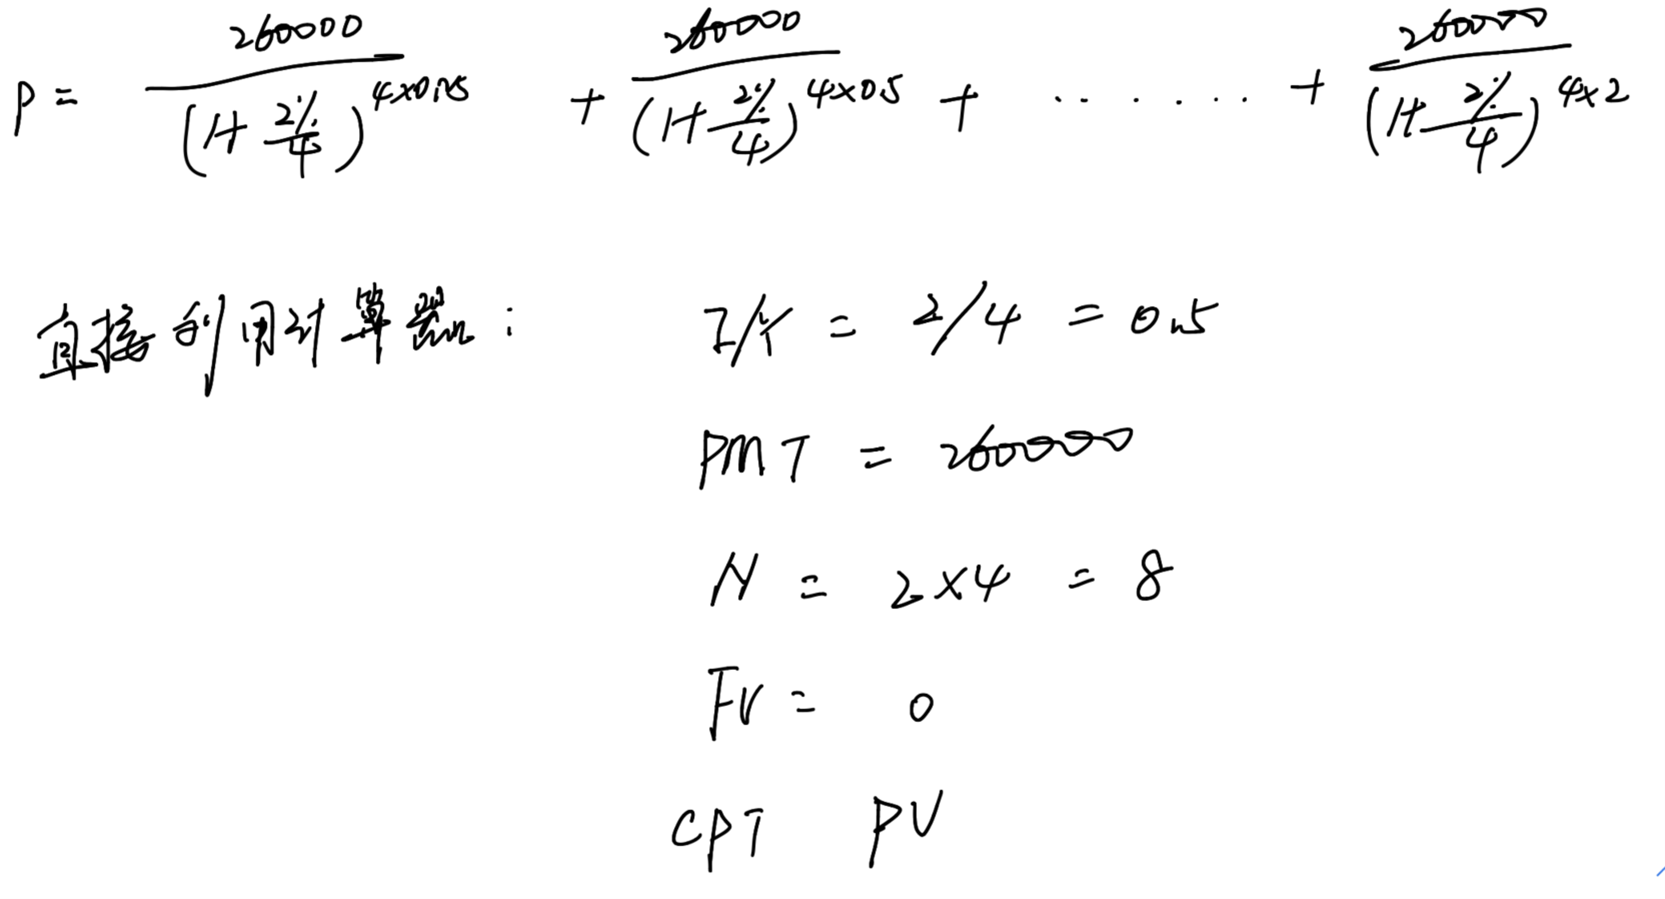 P = 260000 / (1+ 2%/4)^4×0.25 + 260000 / (1+ 2%/4)^4×0.5 + ........ + 260000 / (1+ 2%/4)^4×2
直接利用计算器: I/Y = 2/4 = 0.5
PMT = 260000
N = 2×4 = 8
FV = 0
CPT PV